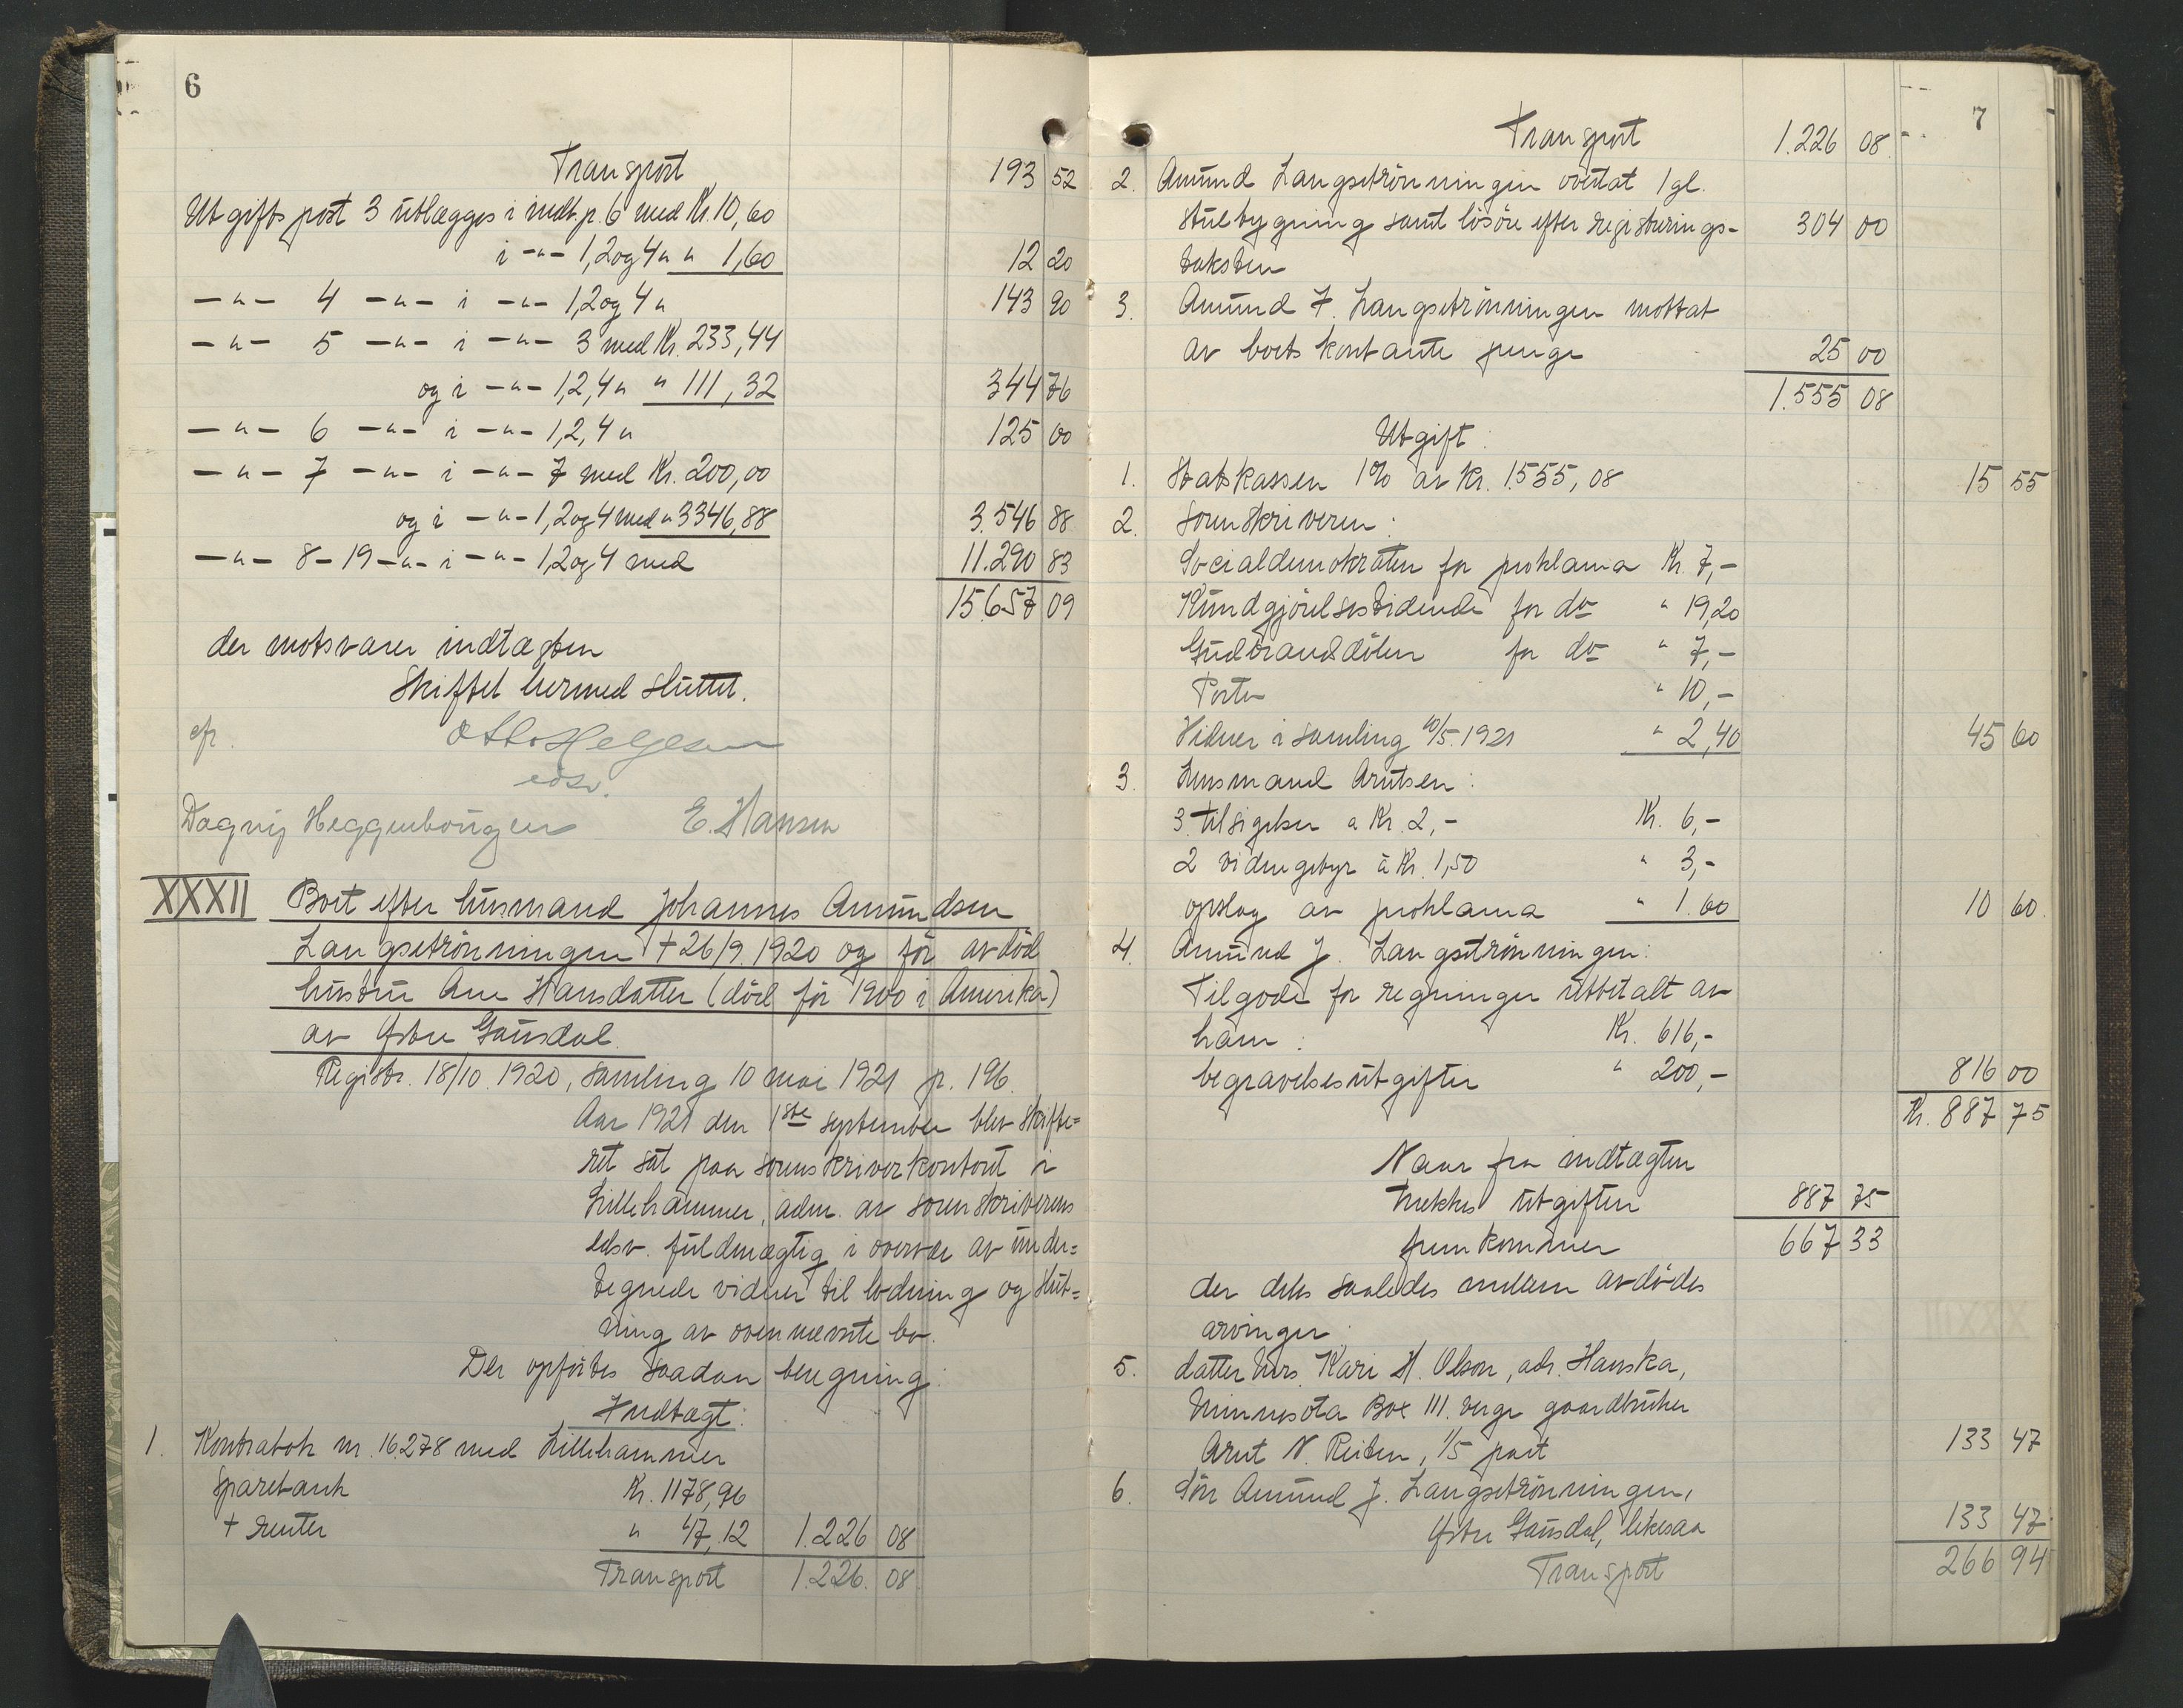 6
Transport 193 52
Utgifts post 3 utlægges i indt. p. 6 med Kr. 10,60
i -"- 1,2 og 4 " " 1,60 12 20
-"- 4 -"- i -"- 1,2 og 4 " 143 90
-"- 5 -"- i -"- 3 med Kr. 233,44
og i -"- 1,2,4 " " 111,32 344 76
-"- 6 -"- i -"- 1,2,4 " 125 00
-"- 7 -"- i -"- 7 med Kr. 200,00
og i -"- 1,2 og 4 med " 3346,88 3.546 88
-"- 8-19 -"- i -"- 1,2 og 4 med 11.290 83
15.657 09
der motsvarer indtægten
Skiftet hermed sluttet.
Otto Helgesen
edsv.
Dagny Heggenhougen E. Hansen
XXXII Boet efter husmand Johannes Amundsen
Langsetrönningen + 26/9. 1920 og för avdöd
hustru Ane Hansdatter (död för 1900 i Amerika)
av Østre Gausdal.
Registr. 18/10. 1920, samling 10 mai 1921 p. 196.
Aar 1921 den 1ste september blev skifte=
ret sat paa sorenskriverkontoret i
Lillehammer, adm. av sorenskriverens
edsv. fuldmægtig i overvær av under=
tegnede vidner til lodning og slut=
ning av ovennævnte bo.
Der opförtes saadan beregning:
Indtægt:
1. Kontrabok nr. 16278 med Lillehammer
Sparebank Kr. 1178,96
+ renter " 47,12 1.226 08
Transport 1.226. 08
7
Transport 1.226 08
2. Amund Langsetrönningen overtat 1 gl.
stuebygning samt lösöre efter registerings- 304 00
taksten
3. Amund J. Langsetrönningen mottat
av boets kontante penge 25 00
1.555 08
Utgift:
1. Statskassen 1% av Kr. 1.555,08 15 55
2. Sorenskriveren:
Socialdemokraten for proklama Kr. 7,-
Kundgjörelsestidende for do " 19,20
Gudbrandsdölen for do " 7,-
Porto " 10,-
Vidner i samling 10/5. 1921 " 2,40 45 60
3. Lensmand Arntsen:
3 tilsigelser a Kr. 2,- Kr. 6,-
2 vidnegebyr à Kr. 1,50 " 3,-
opslag av proklama " 1.60 10 60
4. Amund J. Langsetrönningen:
Tilgode for regninger utbetalt av
ham: Kr. 616,-
begravelsesutgifter " 200,- 816 00
Kr. 887 75
Naar fra indtægten
trækkes utgiften 887 75
fremkommer 667 33
der deles saaledes mellem avdödes
arvinger:
5. datter Mrs. Kari H. Olson, adr. Hanska,
Minnesota Box 111. verge gaardbruker
Arnt N. Reiten, 1/5 part 133 47
6. Sön Amund J. Langsetrönningen,
Østre Gausdal, likesaa 133 47
Transport 266 94